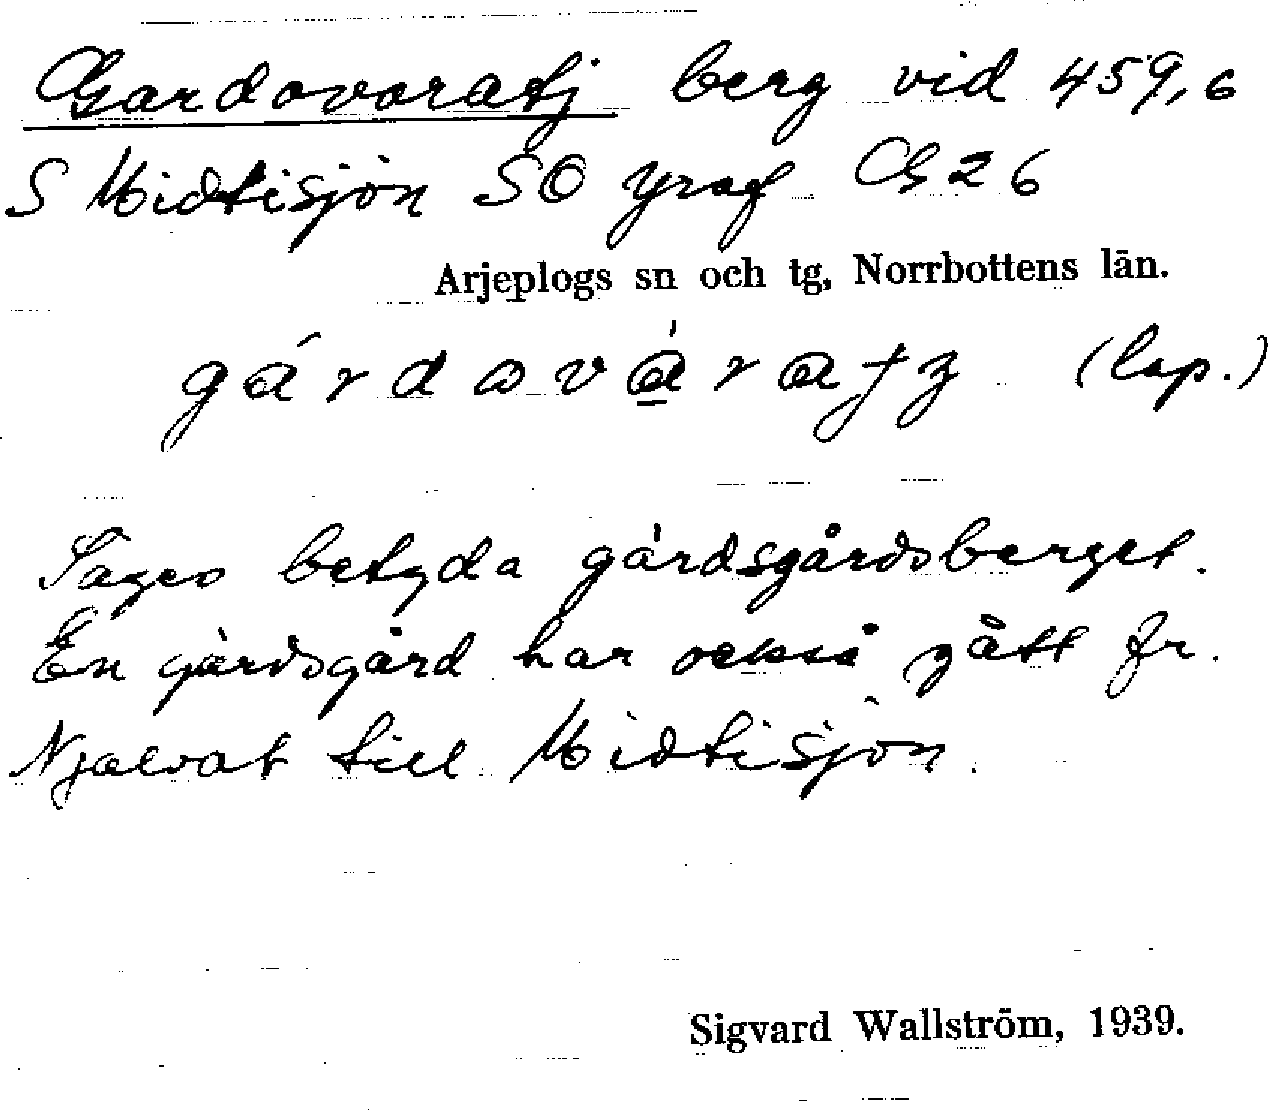 Gardovaratj berg vid 459,6
S Midtisjön SO Yraf G 26
Arjeplogs sn och tg, Norrbottens län.
(lap.)
Sages betyda gärdsgårdsberget.
En gärdsgård har också gått fr.
Njalvat till Midtisjön.
Sigvard Wallström, 1939.